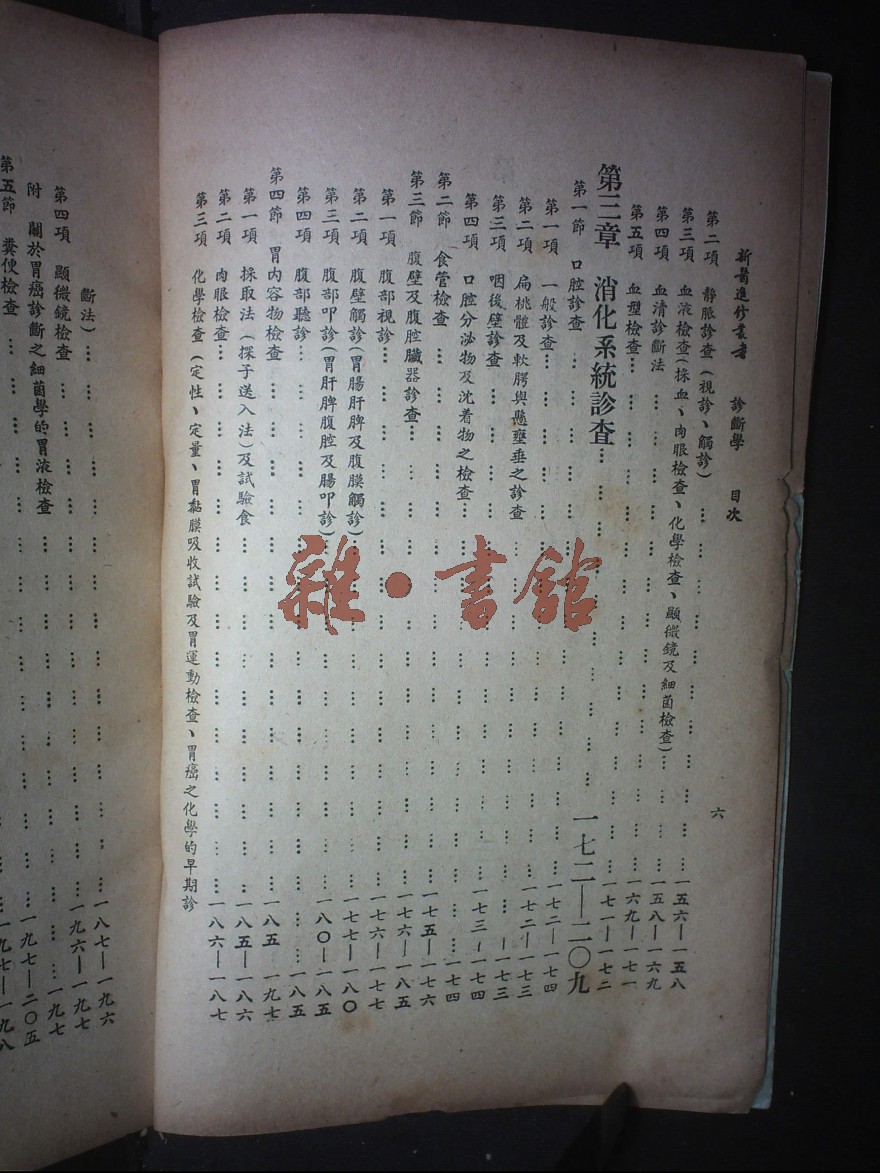 新醫進修叢書 診斷學 目次 六
第二項 靜脈診查(視診、觸診)… 一五六—一五八
第三項 血液檢查(採血、肉眼檢查、化學檢查、顯微鏡及細菌檢查)… 一五八—一六九
第四項 血清診斷法… 一六九—一七一
第五項 血型檢查… 一七一—一七二
第三章 消化系統診查… 一七二—二〇九
第一節 口腔診查… 一七二—一七四
第一項 一般診查… 一七二—一七三
第二項 扁桃體及軟腭與懸壅垂之診查… 一七三
第三項 咽後壁診查… 一七三—一七四
第四項 口腔分泌物及沈着物之檢查… 一七四
第二節 食管檢查… 一七五—一七六
第三節 腹壁及腹腔臟器診查… 一七六—一八五
第一項 腹部視診… 一七六—一七七
第二項 腹壁觸診(胃腸肝脾及腹膜觸診)… 一七七—一八〇
第三項 腹部叩診(胃肝脾腹腔及腸叩診)… 一八〇—一八五
第四項 腹部聽診… 一八五
第四節 胃內容物檢查… 一八五—一九七
第一項 採取法(探子送入法)及試驗食… 一八五—一八六
第二項 肉眼檢查… 一八六—一八七
第三項 化學檢查(定性、定量、胃黏膜吸收試驗及胃運動檢查、胃癌之化學的早期診
斷法)… 一八七—一九六
第四項 顯微鏡檢查… 一九六—一九七
附 關於胃癌診斷之細菌學的胃液檢查… 一九七
第五節 糞便檢查… 一九七—二〇五
一九七—一九八
雜·書館